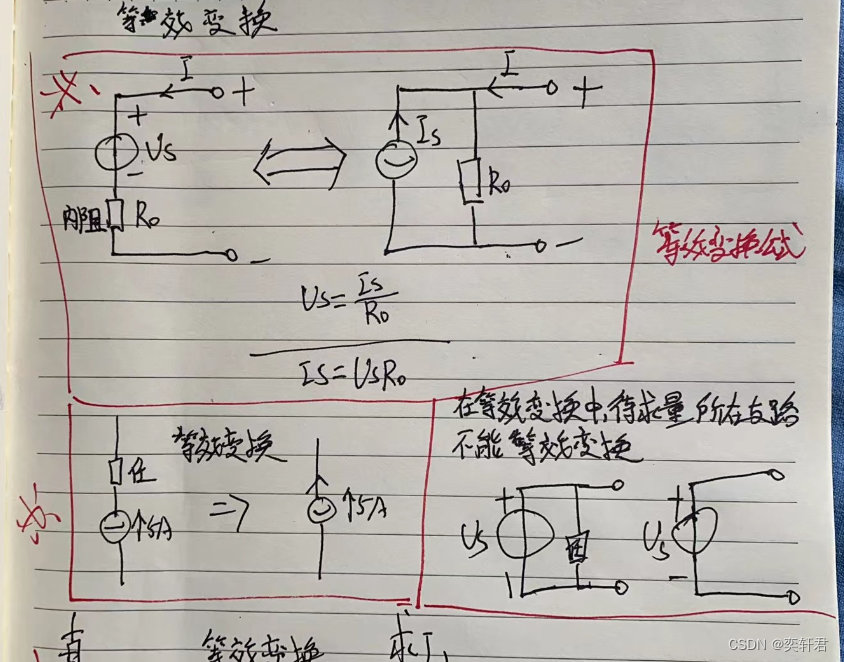 等效变换
I
+
I
+
+
Us
-
Is
内阻 R₀
R₀
-
-
等效变换公式
Us=Is/R₀
Is=UsR₀
在等效变换中,待求量所在支路
不能等效变换
任
等效变换
=>
↑5A
↑5A
+
Us
任
+
Us
-
等效变换
求I
CSDN @奕轩君